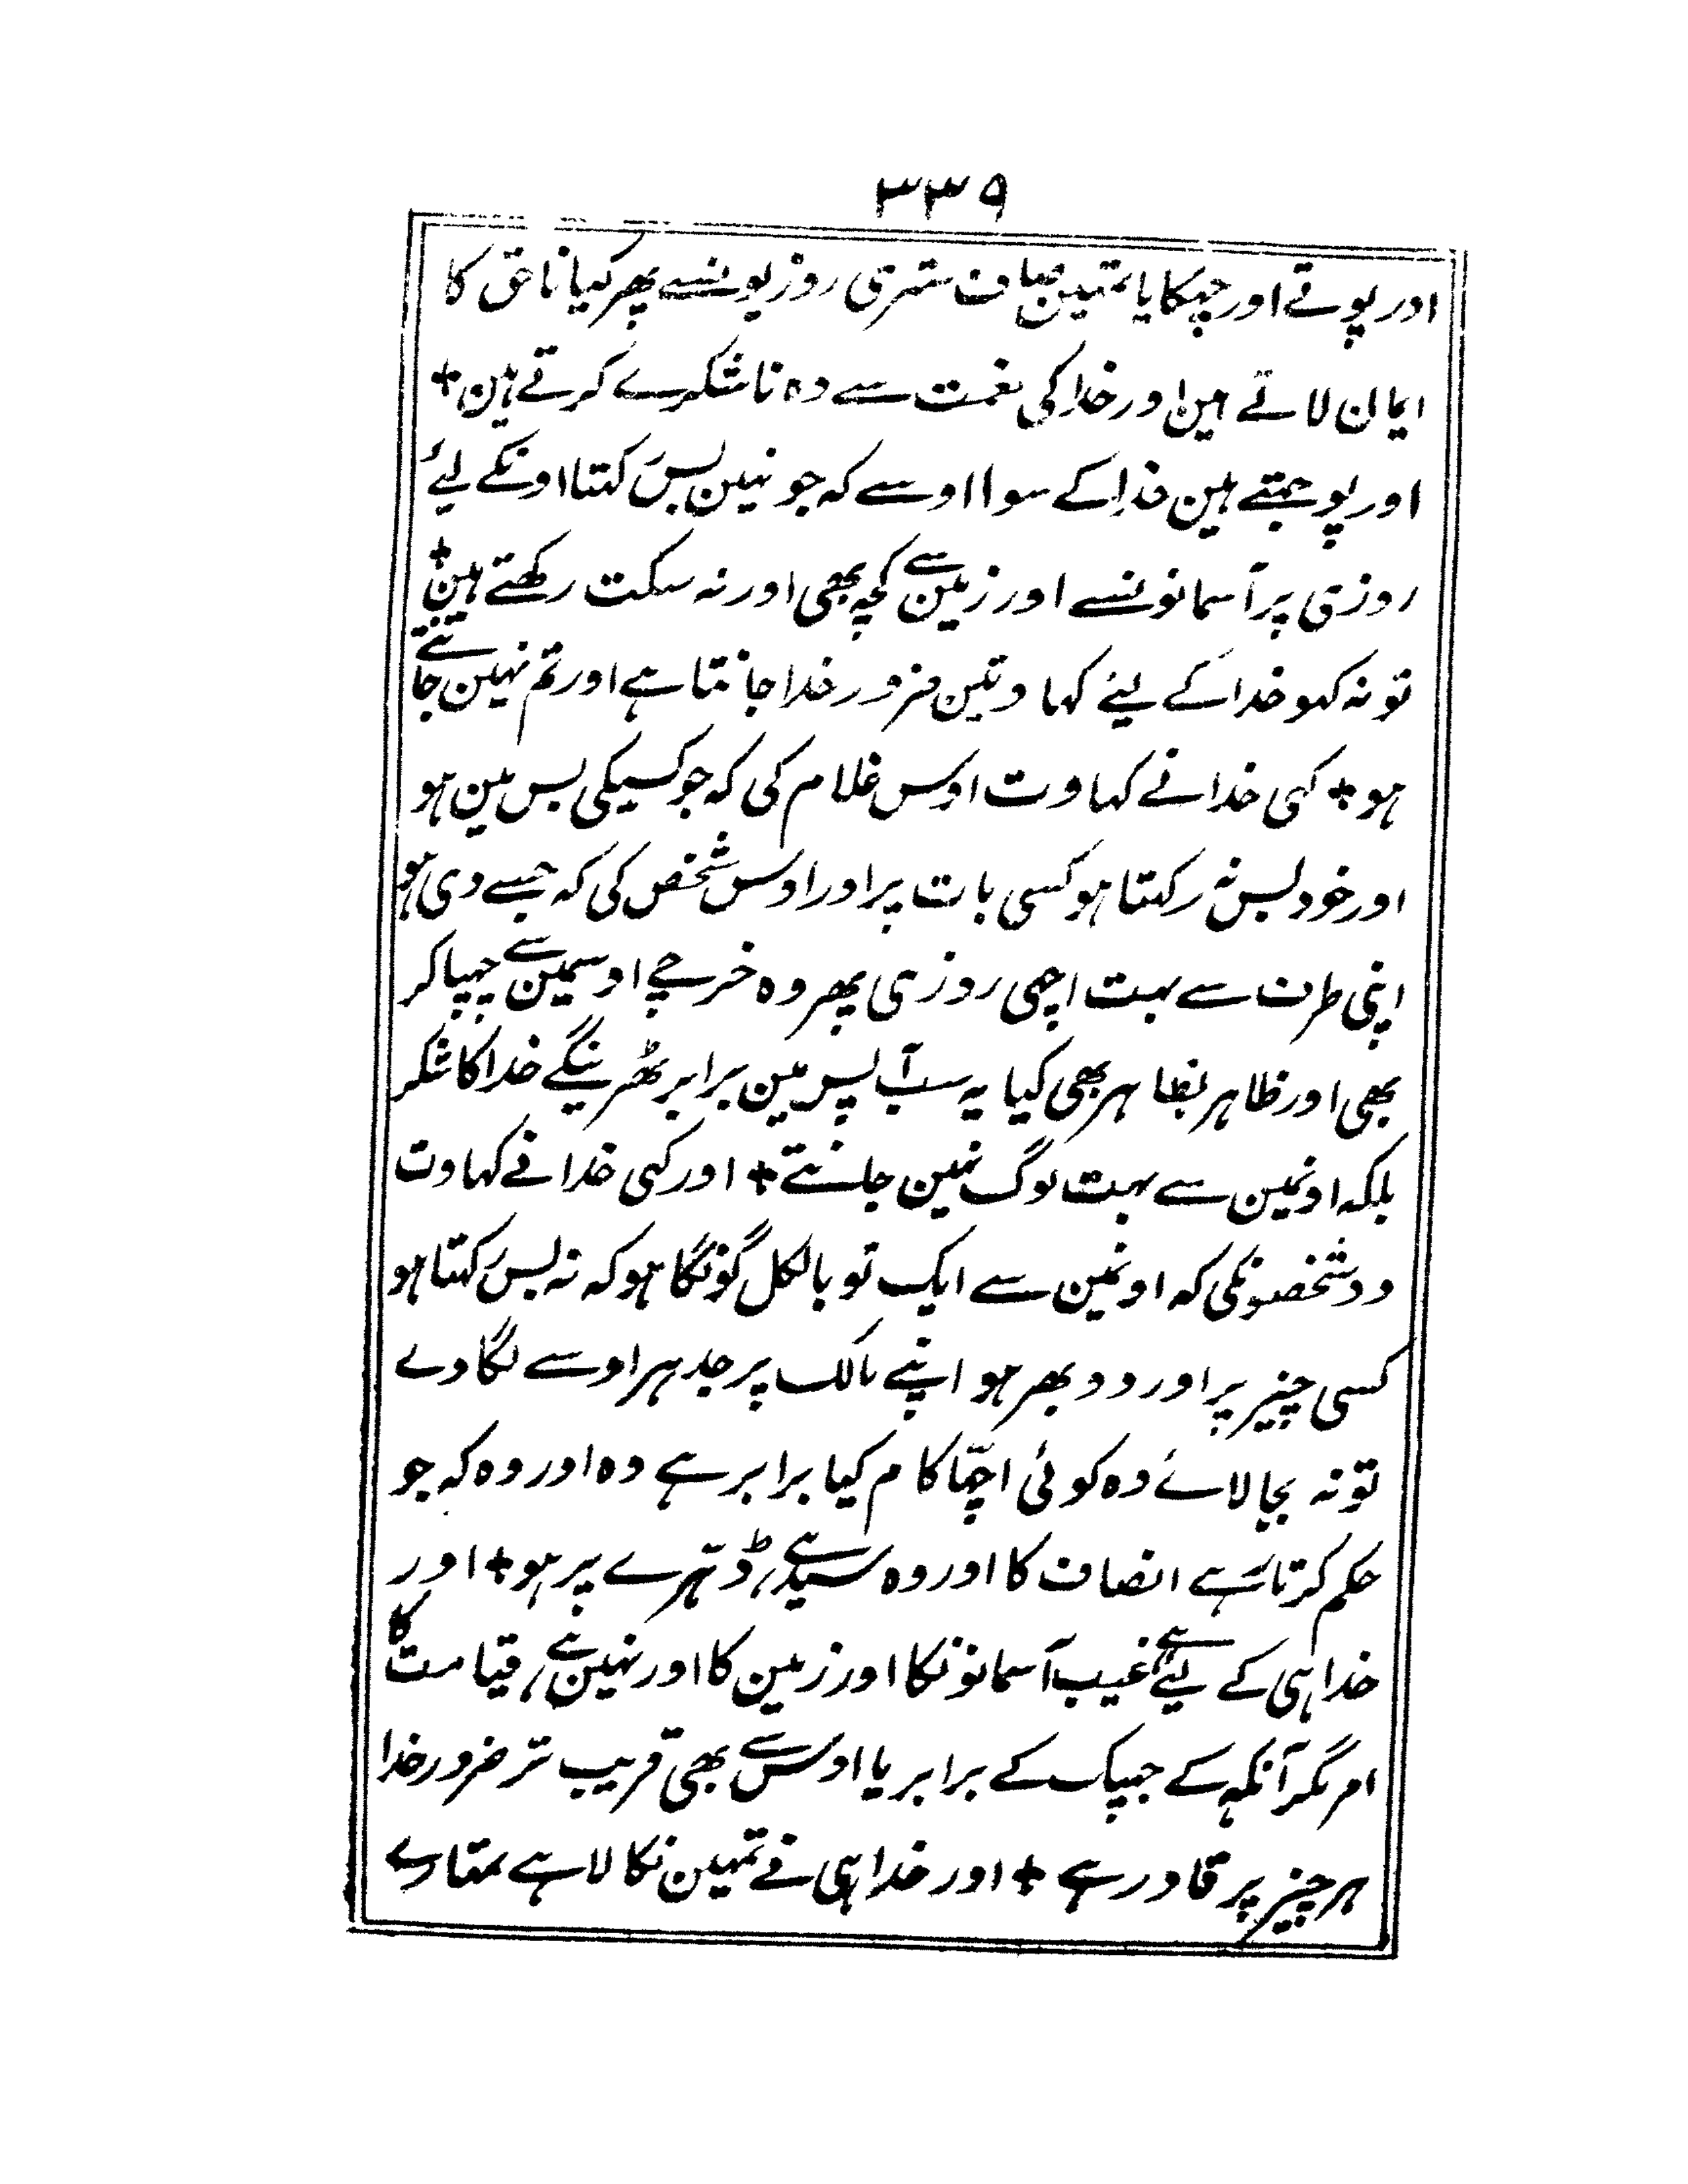 ۳۳۹
اور پوتے اور چہکایا تمہین صاف ستھری روزیونسے پھر کیا ناحق کا
ایمان لاتے ہین اور خدا کی نعمت سے وہ ناشکرے کرتے ہین +
اور پوجتے ہین خدا کے سوا اوسے کہ جو نہین بس رکہتا اونکے لیئے
روزی پر آسمانونسے اور زمین سے کچہ بھی اور نہ سکت رکھتے ہین +
تو نہ کہو خدا کے لیئے کہاوتین ضرور خدا جانتا ہے اور تم نہین جانتے
ہو + کہی خدا نے کہاوت اوس غلام کی کہ جو کسیکی بس مین ہو
اور خود بس نہ رکہتا ہو کسی بات پر اور اوس شخص کی کہ جسے دی ہو
اپنی طرف سے بہت اچھی روزی پھر وہ خرچے اوسمین سے چھپا کر
بھی اور ظاہر بظاہر بھی کیا یہ سب آپس مین برابر ٹھرینگے خدا کا شکر
بلکہ اونمین سے بہت لوگ نہین جانتے + اور کہی خدا نے کہاوت
دو شخصونکی کہ اونمین سے ایک تو بالکل گونگا ہو کہ نہ بس رکہتا ہو
کسی چیز پر اور دوبھر ہو اپنے مالک پر جدہر اوسے لگا دے
تو نہ بجا لائے وہ کوئی اچھا کام کیا برابر ہے وہ اور وہ کہ جو
حکم کرتا رہے انصاف کا اور وہ سیدہے ڈہرے پر ہو + اور
خدا ہی کے لیئے ہے غیب آسمانونکا اور زمین کا اور نہین ہے قیامت کا
امر مگر آنکہہ کے جہپک کے برابر یا اوس سے بھی قریب تر ضرور خدا
ہر چیز پر قادر ہے + اور خدا ہی نے تمہین نکالا ہے تمھارے